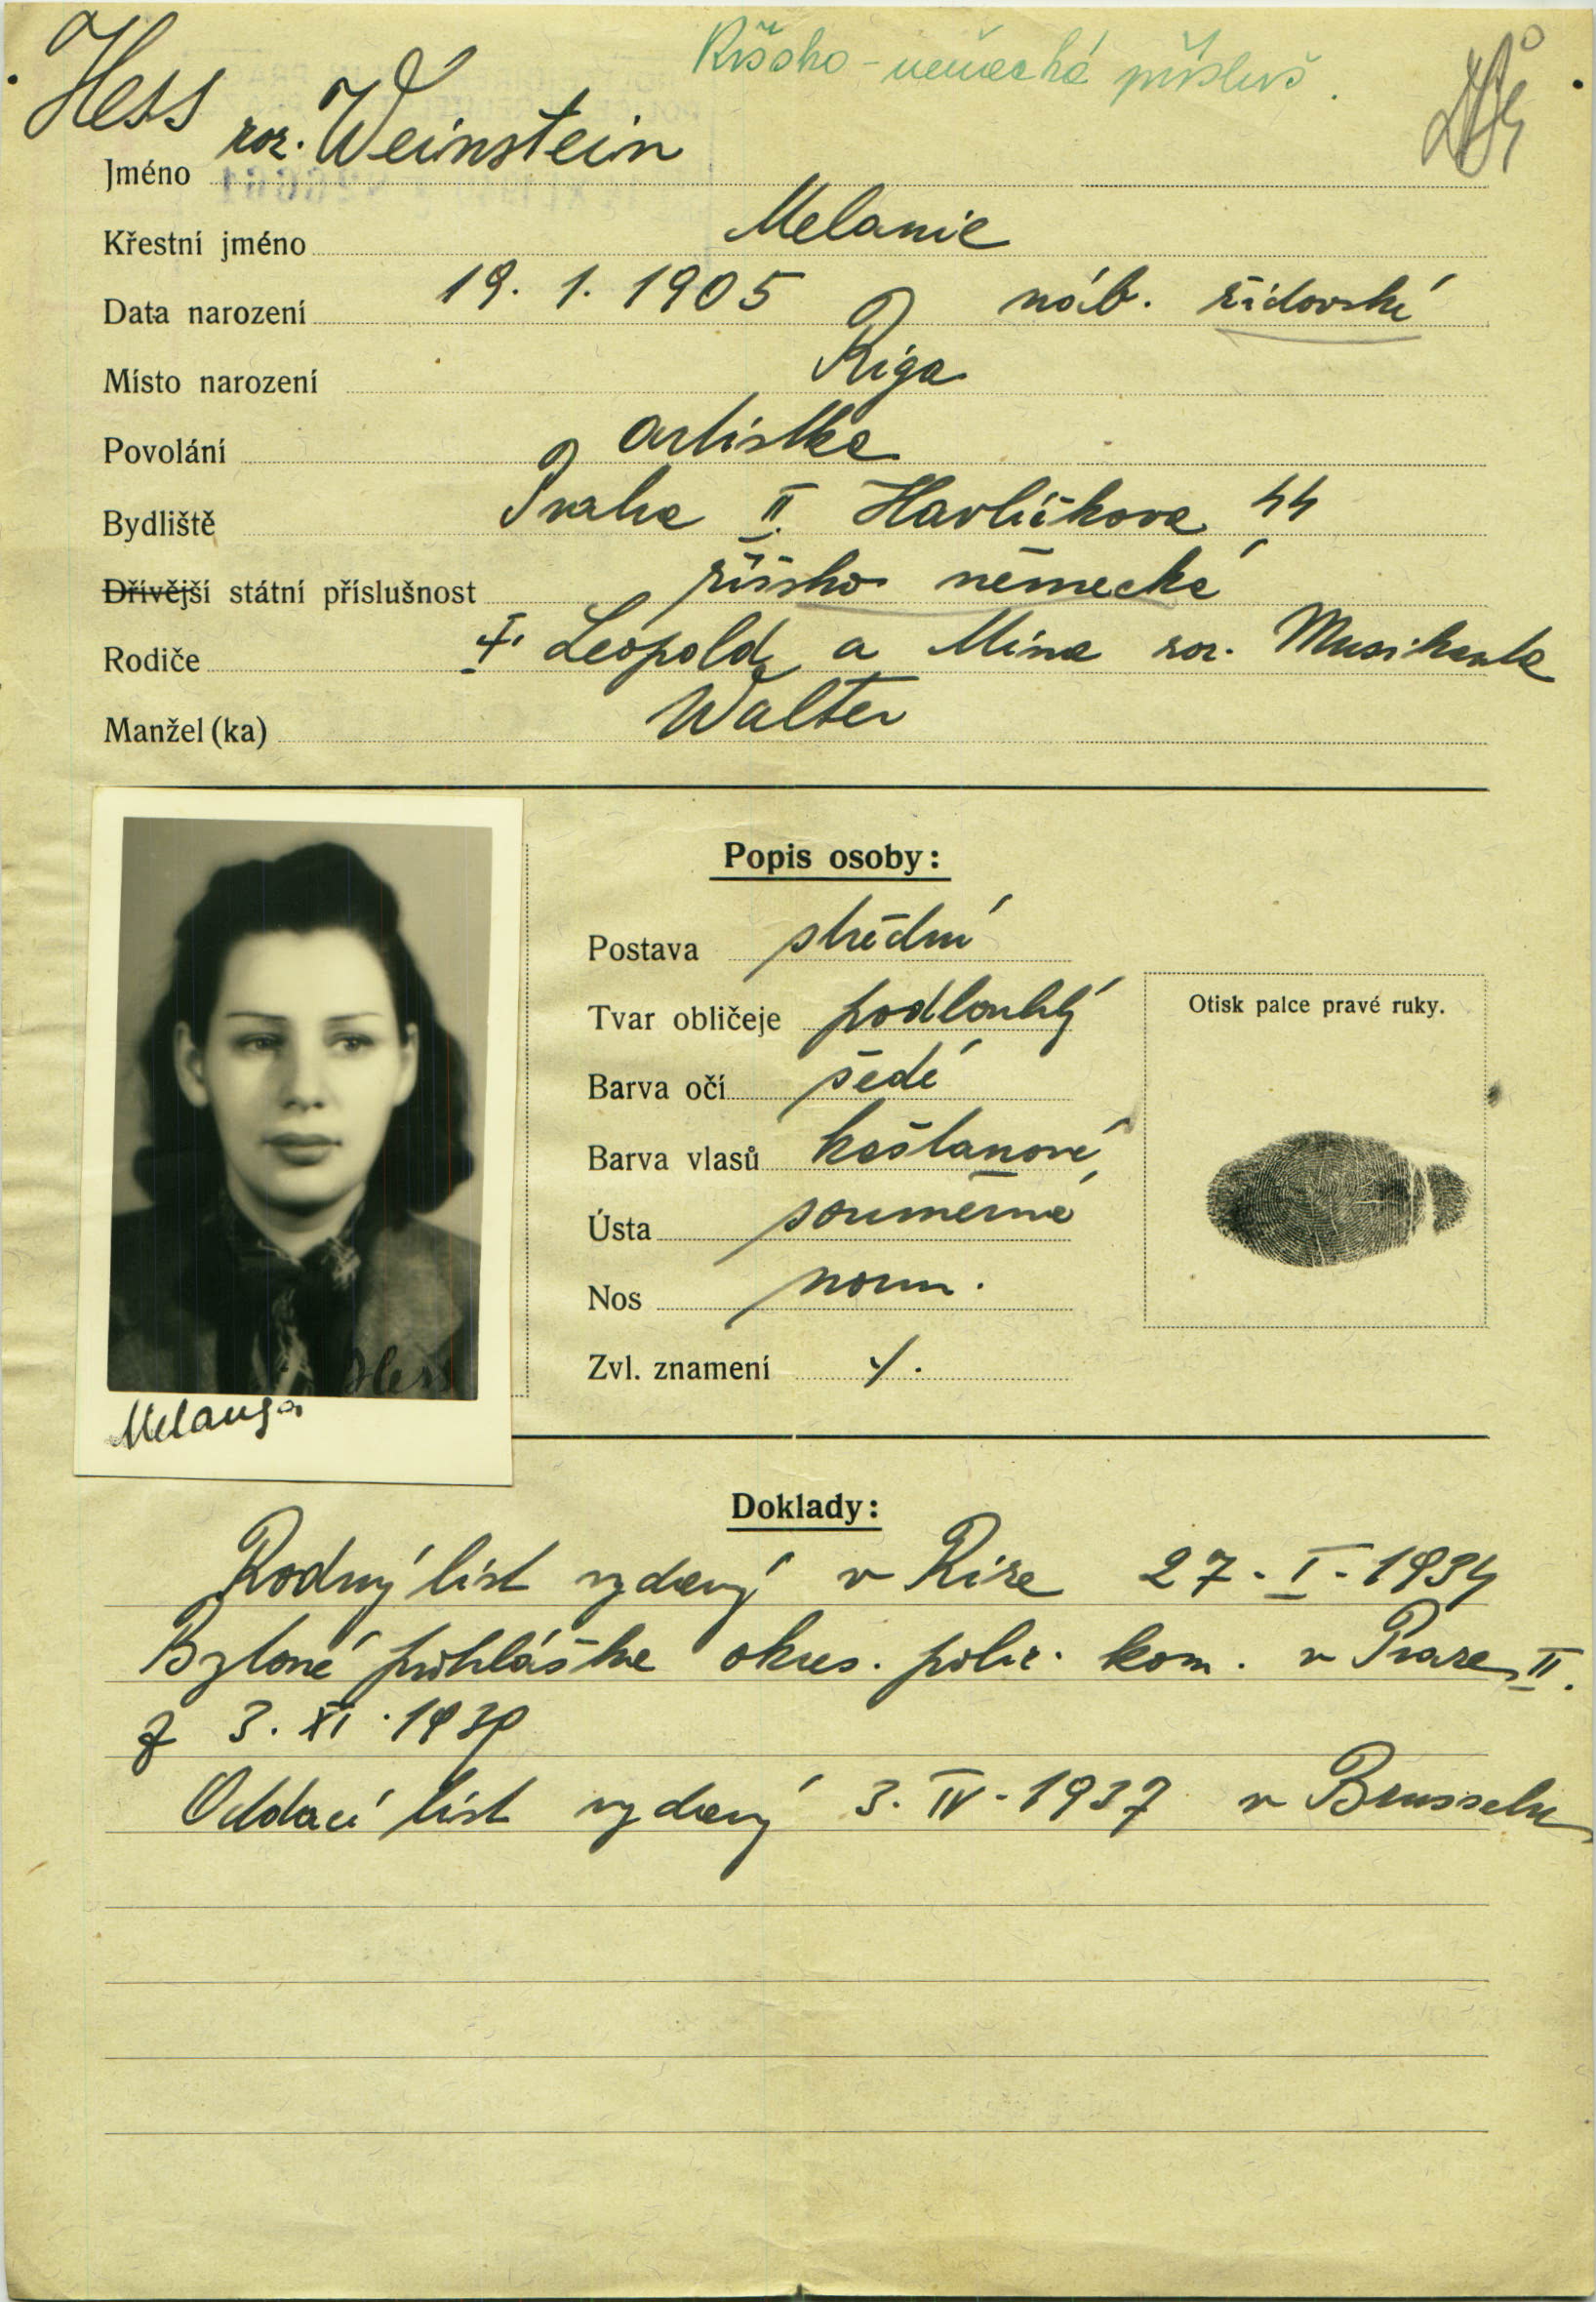 Říšsko-německá přísluš.
Hess
roz. Weinstein
Jméno
Křestní jméno Melanie
Data narození 19. 1. 1905 náb. židovské
Místo narození Riga
Povolání artistka
Bydliště Praha II. Havlíčkova 44
Dřívější státní příslušnost říšsko německá
Rodiče Leopold a Mina roz. Musikanta
Manžel(ka) Walter
Popis osoby:
Postava střední
Tvar obličeje podlouhlý
Otisk palce pravé ruky.
Barva očí šedé
Barva vlasů kaštanové
Ústa souměrné
Nos norm.
Zvl. znamení ./.
Hess
Melanja
Doklady:
Rodný list vydaný v Rize 27. I. 1934
Bytové přihláška okres. polic. kom. v Praze II.
z 3. XI. 1939
Oddací list vydaný 3. IV. 1937 v Brusselu